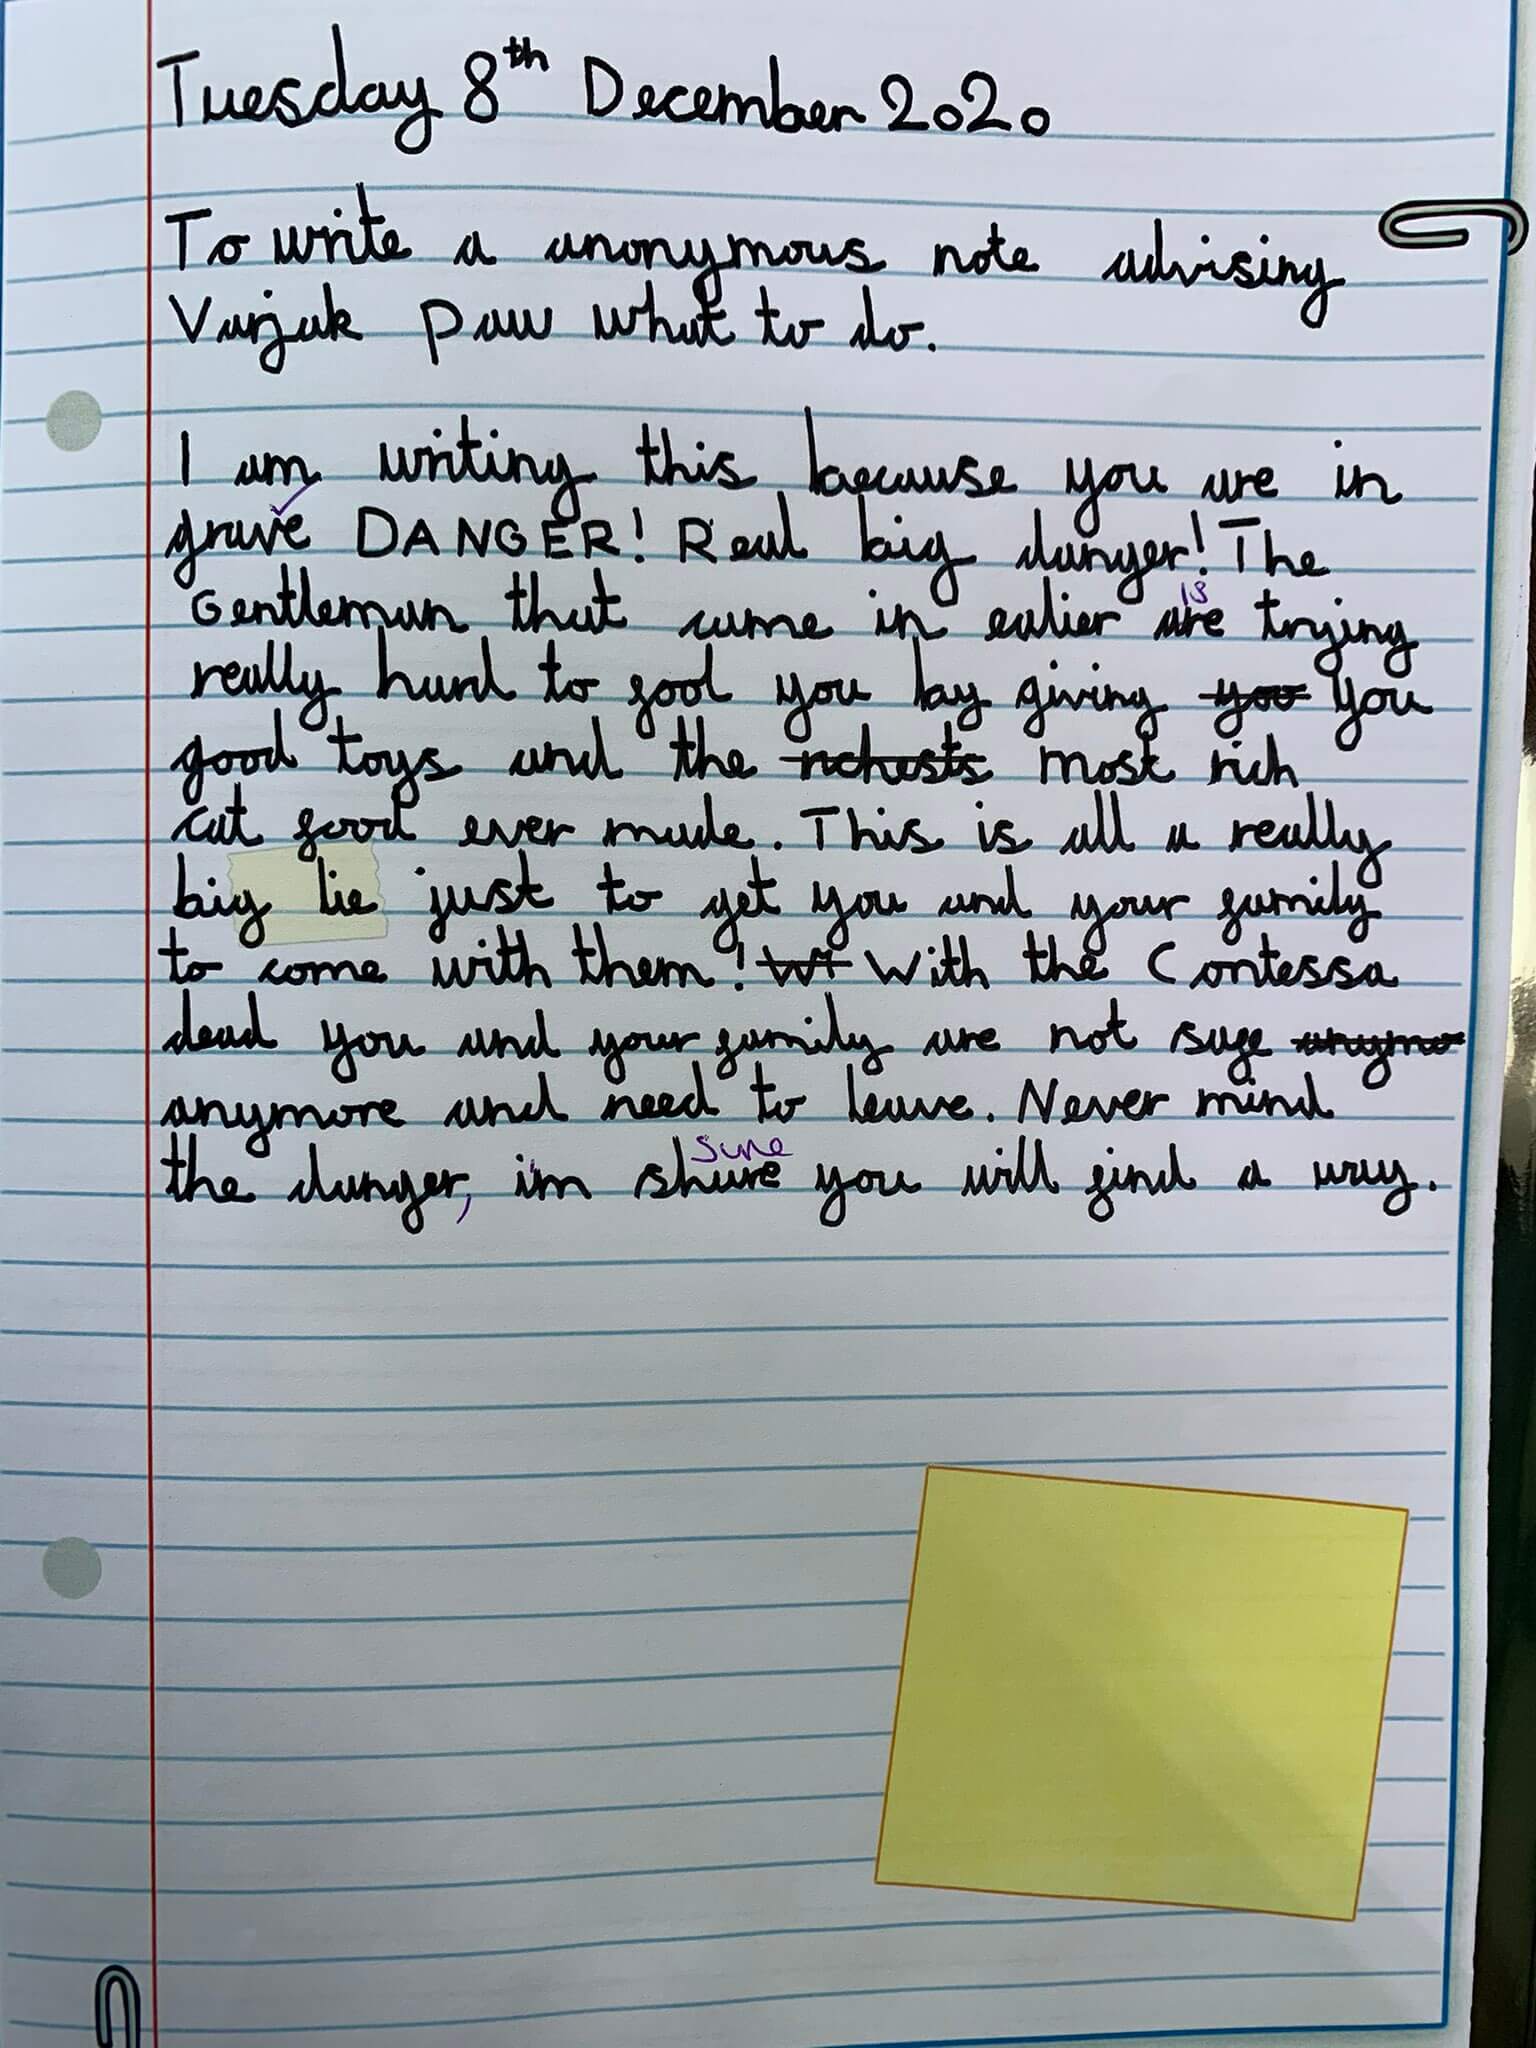 Tuesday 8th December 2020
To write a anonymous note advising
Varjak Paw what to do.
I am writing this because you are in
grave DANGER! Real big danger! The
Gentleman that came in ealier are is trying
really hard to fool you by giving yoo you
good toys and the richests most rich
cat food ever made. This is all a really
big lie just to get you and your family
to come with them! Wi With the Contessa
dead you and your family are not safe anymo
anymore and need to leave. Never mind
the danger, i'm shure sure you will find a way.